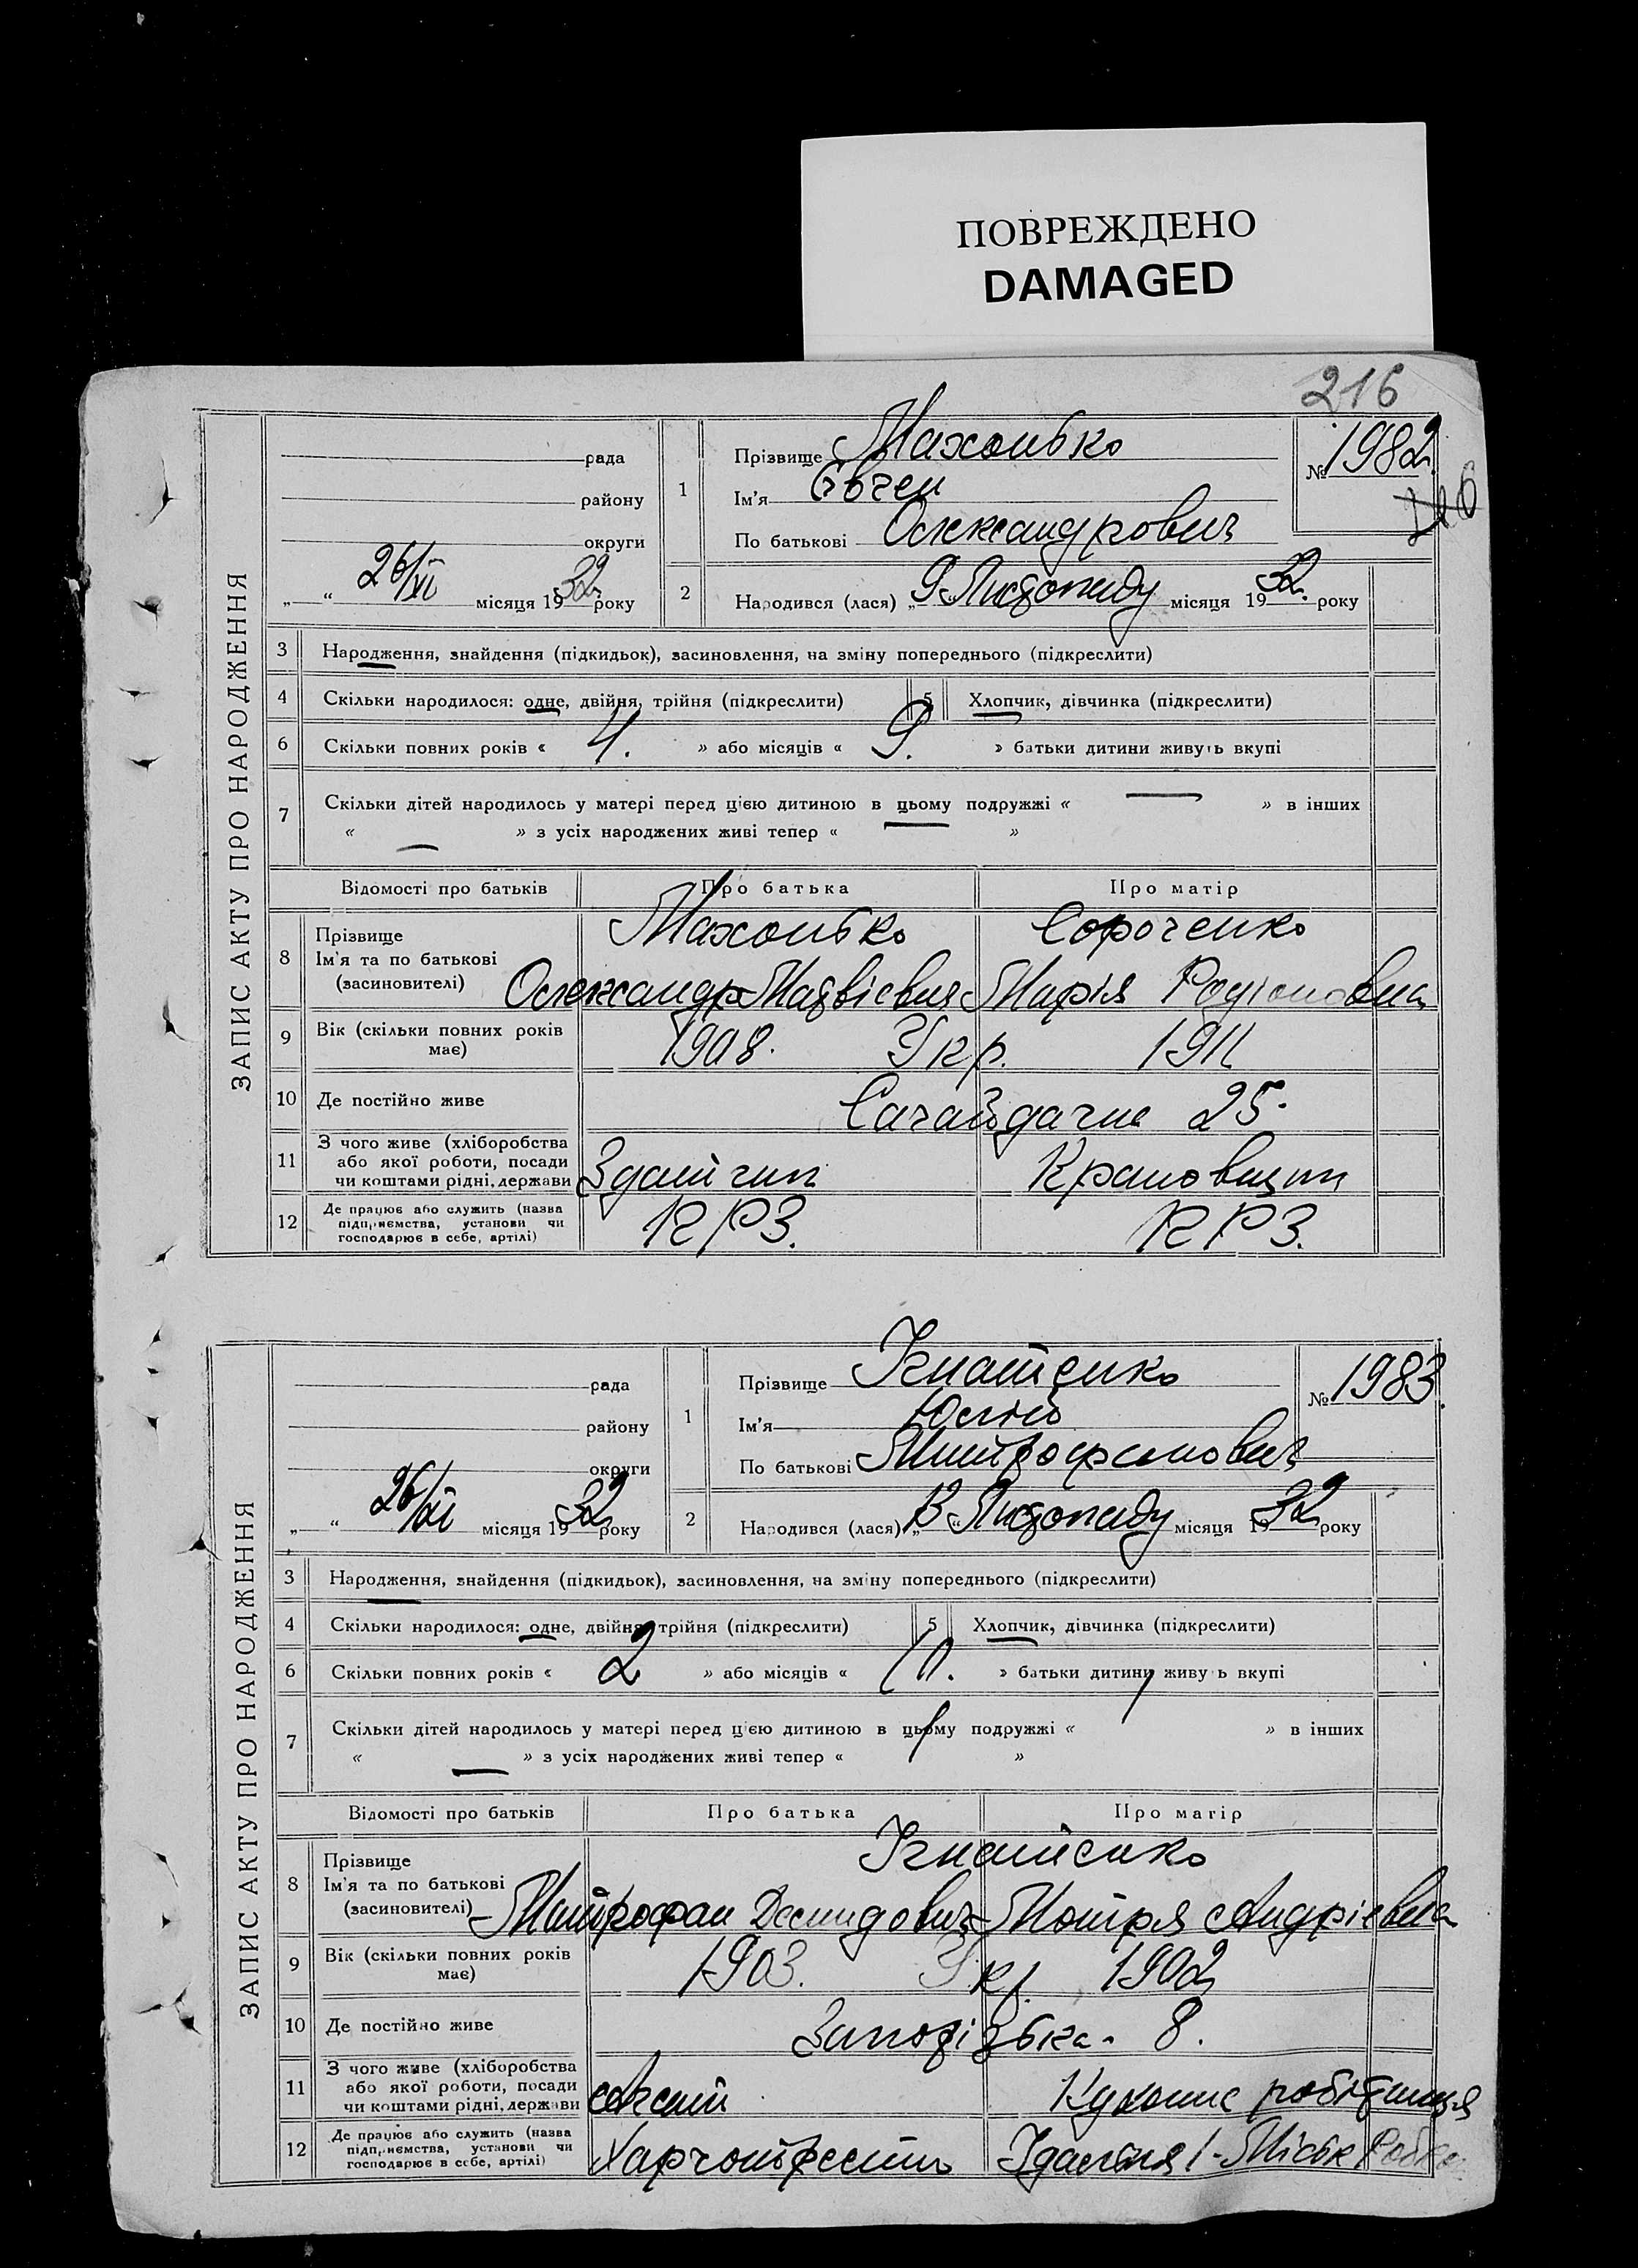 ПОВРЕЖДЕНО
DAMAGED
216
ЗАПИС АКТУ ПРО НАРОДЖЕННЯ
рада
району
округи
26/XI місяця 1932 року
1
Прізвище Махонько
Ім'я Євген
По батькові Олександрович
№ 1982
2
Народився (лася) „9“ Листопаду місяця 1932. року
3 Народження, знайдення (підкидьок), засиновлення, на зміну попереднього (підкреслити)
4 Скільки народилося: одне, двійня, трійня (підкреслити) 5 Хлопчик, дівчинка (підкреслити)
6 Скільки повних років « 4. » або місяців « 9. » батьки дитини живуть вкупі
7 Скільки дітей народилось у матері перед цією дитиною в цьому подружжі « — » в інших
« — » з усіх народжених живі тепер « — »
Відомості про батьків Про батька Про матір
8 Прізвище Ім'я та по батькові (засиновителі)
Махонько Сороченко
Олександр Матвієвич Марія Родіоновна
9 Вік (скільки повних років має) 1908. Укр. 1911
10 Де постійно живе Сагайдачна 25.
11 З чого живе (хліборобства або якої роботи, посади чи коштами рідні, держави Крановщиц
12 Де працює або служить (назва підприємства, установи чи господарює в себе, артілі) КРЗ. КРЗ.
ЗАПИС АКТУ ПРО НАРОДЖЕННЯ
рада
району
округи
26/XI місяця 1932 року
1
Прізвище Ігнатенко
Ім'я Юлій
По батькові Митрофанович
№ 1983
2
Народився (лася) „13“ Листопаду місяця 1932 року
3 Народження, знайдення (підкидьок), засиновлення, на зміну попереднього (підкреслити)
4 Скільки народилося: одне, двійня, трійня (підкреслити) 5 Хлопчик, дівчинка (підкреслити)
6 Скільки повних років « 2 » або місяців « » батьки дитини живуть вкупі
7 Скільки дітей народилось у матері перед цією дитиною в цьому подружжі « 1 » в інших
« — » з усіх народжених живі тепер « 1 »
Відомості про батьків Про батька Про матір
8 Прізвище Ім'я та по батькові (засиновителі)
Ігнатенко
Митрофан Демидович Мотря Андрієвна
9 Вік (скільки повних років має) 1903. Укр. 1902
10 Де постійно живе 8.
11 З чого живе (хліборобства або якої роботи, посади чи коштами рідні, держави Агент Кухонна робітниця
12 Де працює або служить (назва підприємства, установи чи господарює в себе, артілі) Харчотрест Їдальня 1